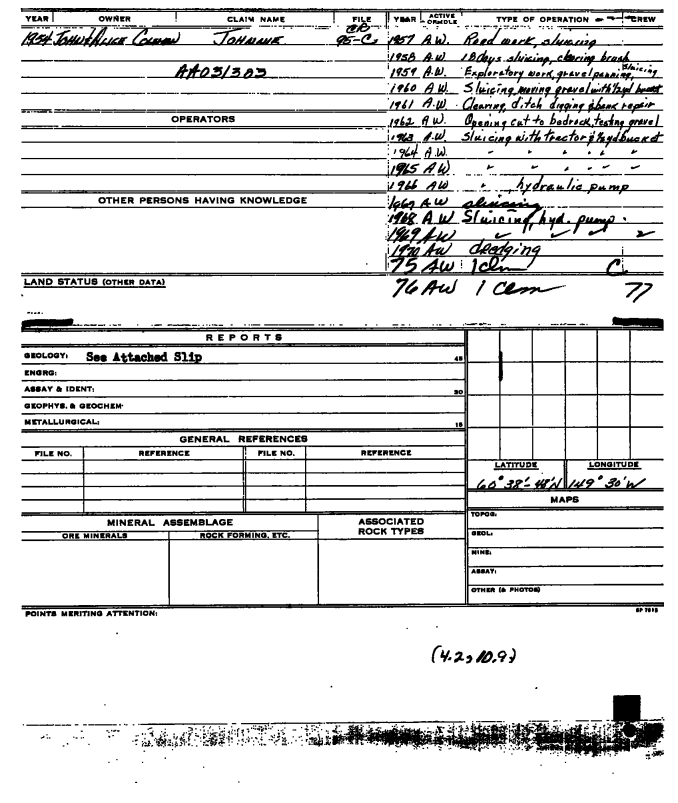 YEAR OWNER CLAIM NAME FILE YEAR ACTIVE OR IDLE TYPE OF OPERATION CREW
1954 JOHN & ALICE JOHNANE CP 95-C 1957 A.W. Road work, sluicing
1958 A.W 18 days sluicing, clearing brush
AA031383 1959 A.W. Exploratory work, gravel panning, sluicing
1960 A W Sluicing, moving gravel with ½ yd bucket
1961 A.W. Clearing, ditch digging & bank repair
OPERATORS 1962 A.W. Opening cut to bedrock, testing gravel
1963 A.W. Sluicing with tractor & ½ yd bucket
1964 A.W. " " " " " "
1965 A W. " " " " " "
1966 AW " , hydraulic pump
OTHER PERSONS HAVING KNOWLEDGE 1967 A W sluicing
1968 A W Sluicing, hyd. pump.
1969 A W
1970 AW dredging
75 AW 1 clm C.
LAND STATUS (OTHER DATA) 76 AW 1 clm 77
REPORTS
GEOLOGY: See Attached Slip 45
ENGRG:
ASSAY & IDENT: 30
GEOPHYS. & GEOCHEM.
METALLURGICAL: 15
GENERAL REFERENCES
FILE NO. REFERENCE FILE NO. REFERENCE
LATITUDE LONGITUDE
60° 38'- 48"N 149° 30'W
MAPS
MINERAL ASSEMBLAGE ASSOCIATED ROCK TYPES TOPOG:
ORE MINERALS ROCK FORMING, ETC. GEOL:
MINE:
ASSAY:
OTHER (& PHOTOS)
POINTS MERITING ATTENTION:
(4.2, 10.9)